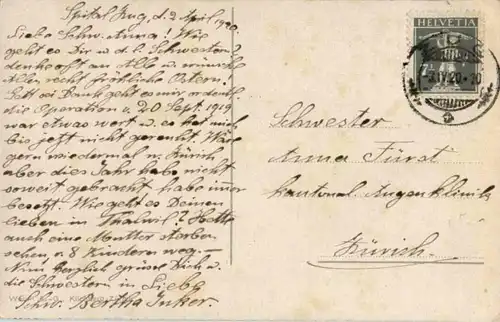 Spital Zug, d. 2. April 1920.
Liebe Schw. Anna! Wie
geht es Dir u. d. l. Schwestern?
denk oft an Alle u. wünsch
Allen recht fröhliche Ostern!
Gott sei Dank geht es mir ordentl.
die Operation v. 20 Sept. 1919
war etwas wert u. es hat mich
bis jetzt nicht gereut. Wäre
gern wiedermal n. Zürich
aber dies Jahr habe nicht
soweit gebracht habe immer
besetzt. Wie geht es Deinen
lieben in Thalwil? Hatte
auch eine Mutter sterben
sehen, v. 8 Kindern weg.
Nun herzlich grüsse Dich u.
die Schwestern in Liebe
Schw. Bertha
HELVETIA
Schwester
Anna Fürst
kantonal Augenklinik
Zürich.